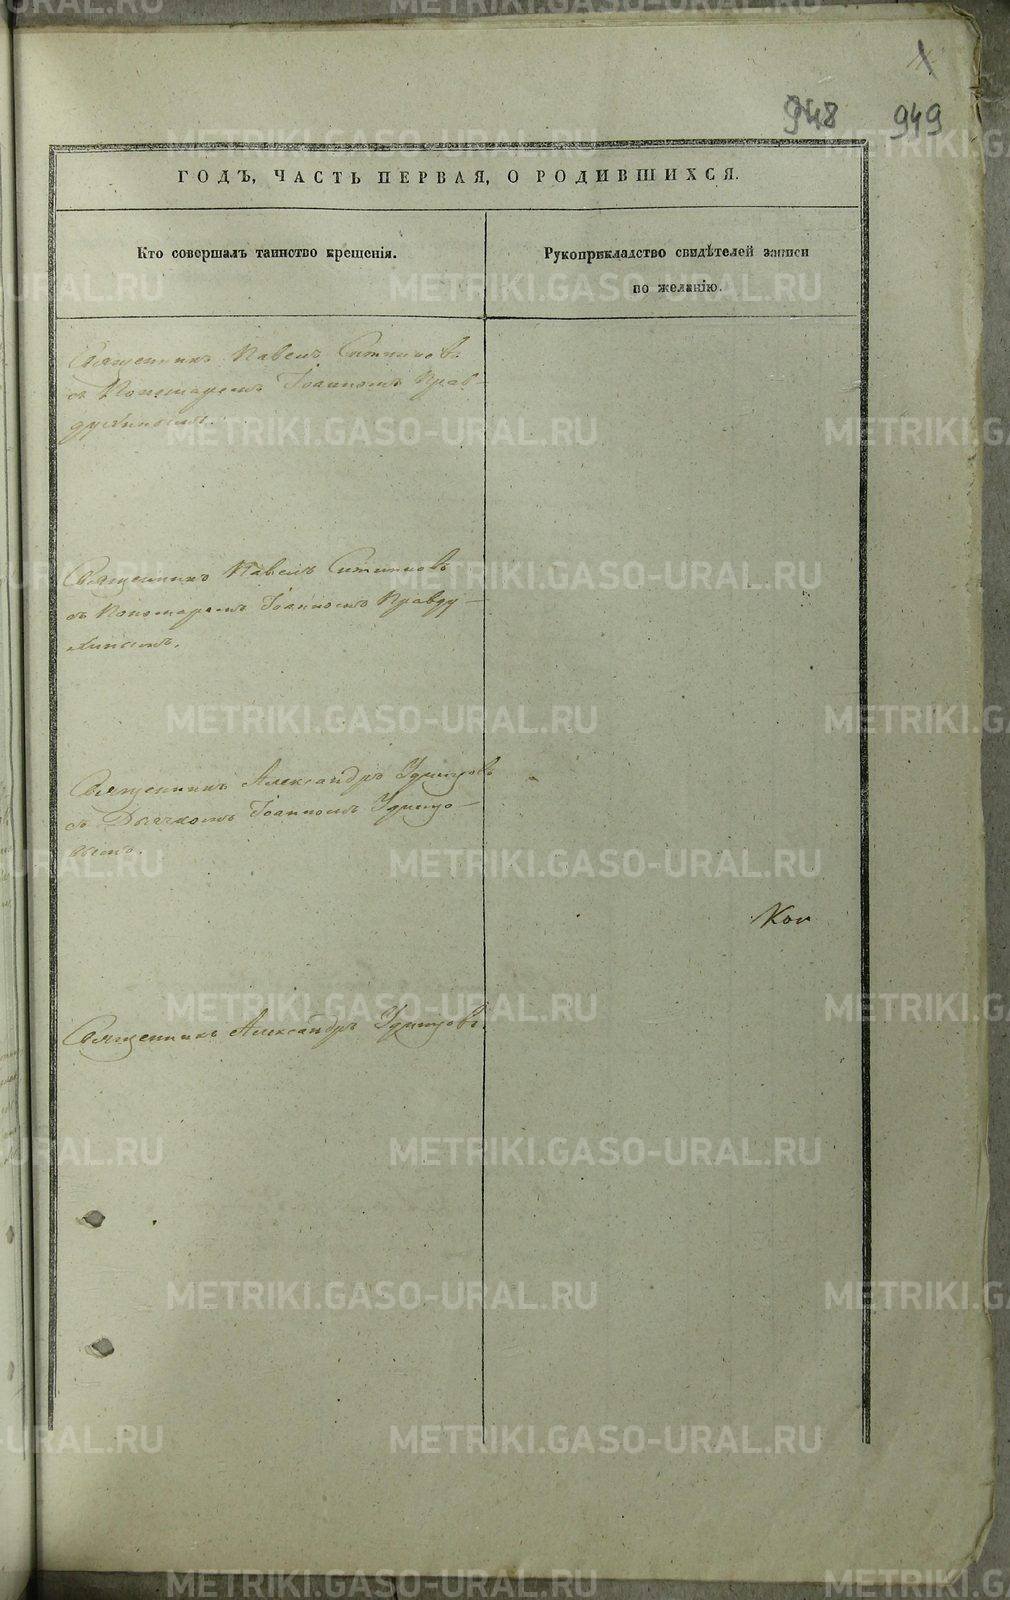 948 949
ГОДЪ, ЧАСТЬ ПЕРВАЯ, О РОДИВШИХСЯ.
Кто совершалъ таинство крещенія.
Рукоприкладство свидѣтелей записи
по желанію.
Священникъ Павелъ
съ Пономаремъ Іоанномъ Прав-
Священникъ Павелъ
съ Пономаремъ Іоанномъ Правду-
Священникъ Александръ Удинцовъ
съ Дьячкомъ Іоанномъ Удинцо-
вымъ.
Священникъ Александръ Удинцовъ.
METRIKI.GASO-URAL.RU